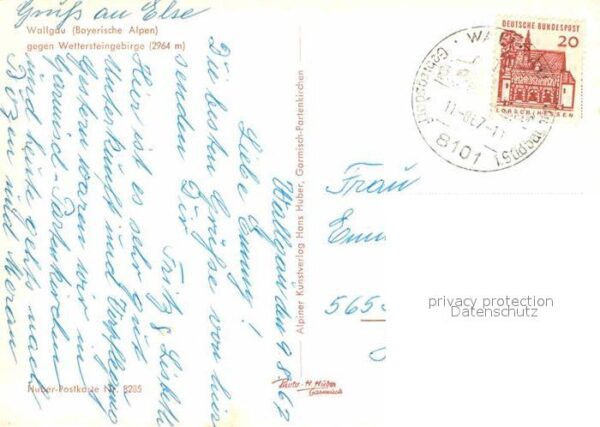 Gruß an Else
Wallgau (Bayerische Alpen)
gegen Wettersteingebirge (2964 m)
Wallgau den 9.8.67
Liebe Emmy!
Die besten Grüße von hier
senden Dir
Fritz & Lisbeth
Hier ist es sehr gut
Unterkunft und Verpflegung
Gestern waren wir in
Garmisch-Partenkirchen
und heute gehts nach
Bozen und Meran
Huber-Postkarte Nr. 8205
Alpiner Kunstverlag Hans Huber, Garmisch-Partenkirchen
Photo-H. Huber
Garmisch
DEUTSCHE BUNDESPOST
20
LORSCH/HESSEN
8101
Frau
565
privacy protection
Datenschutz